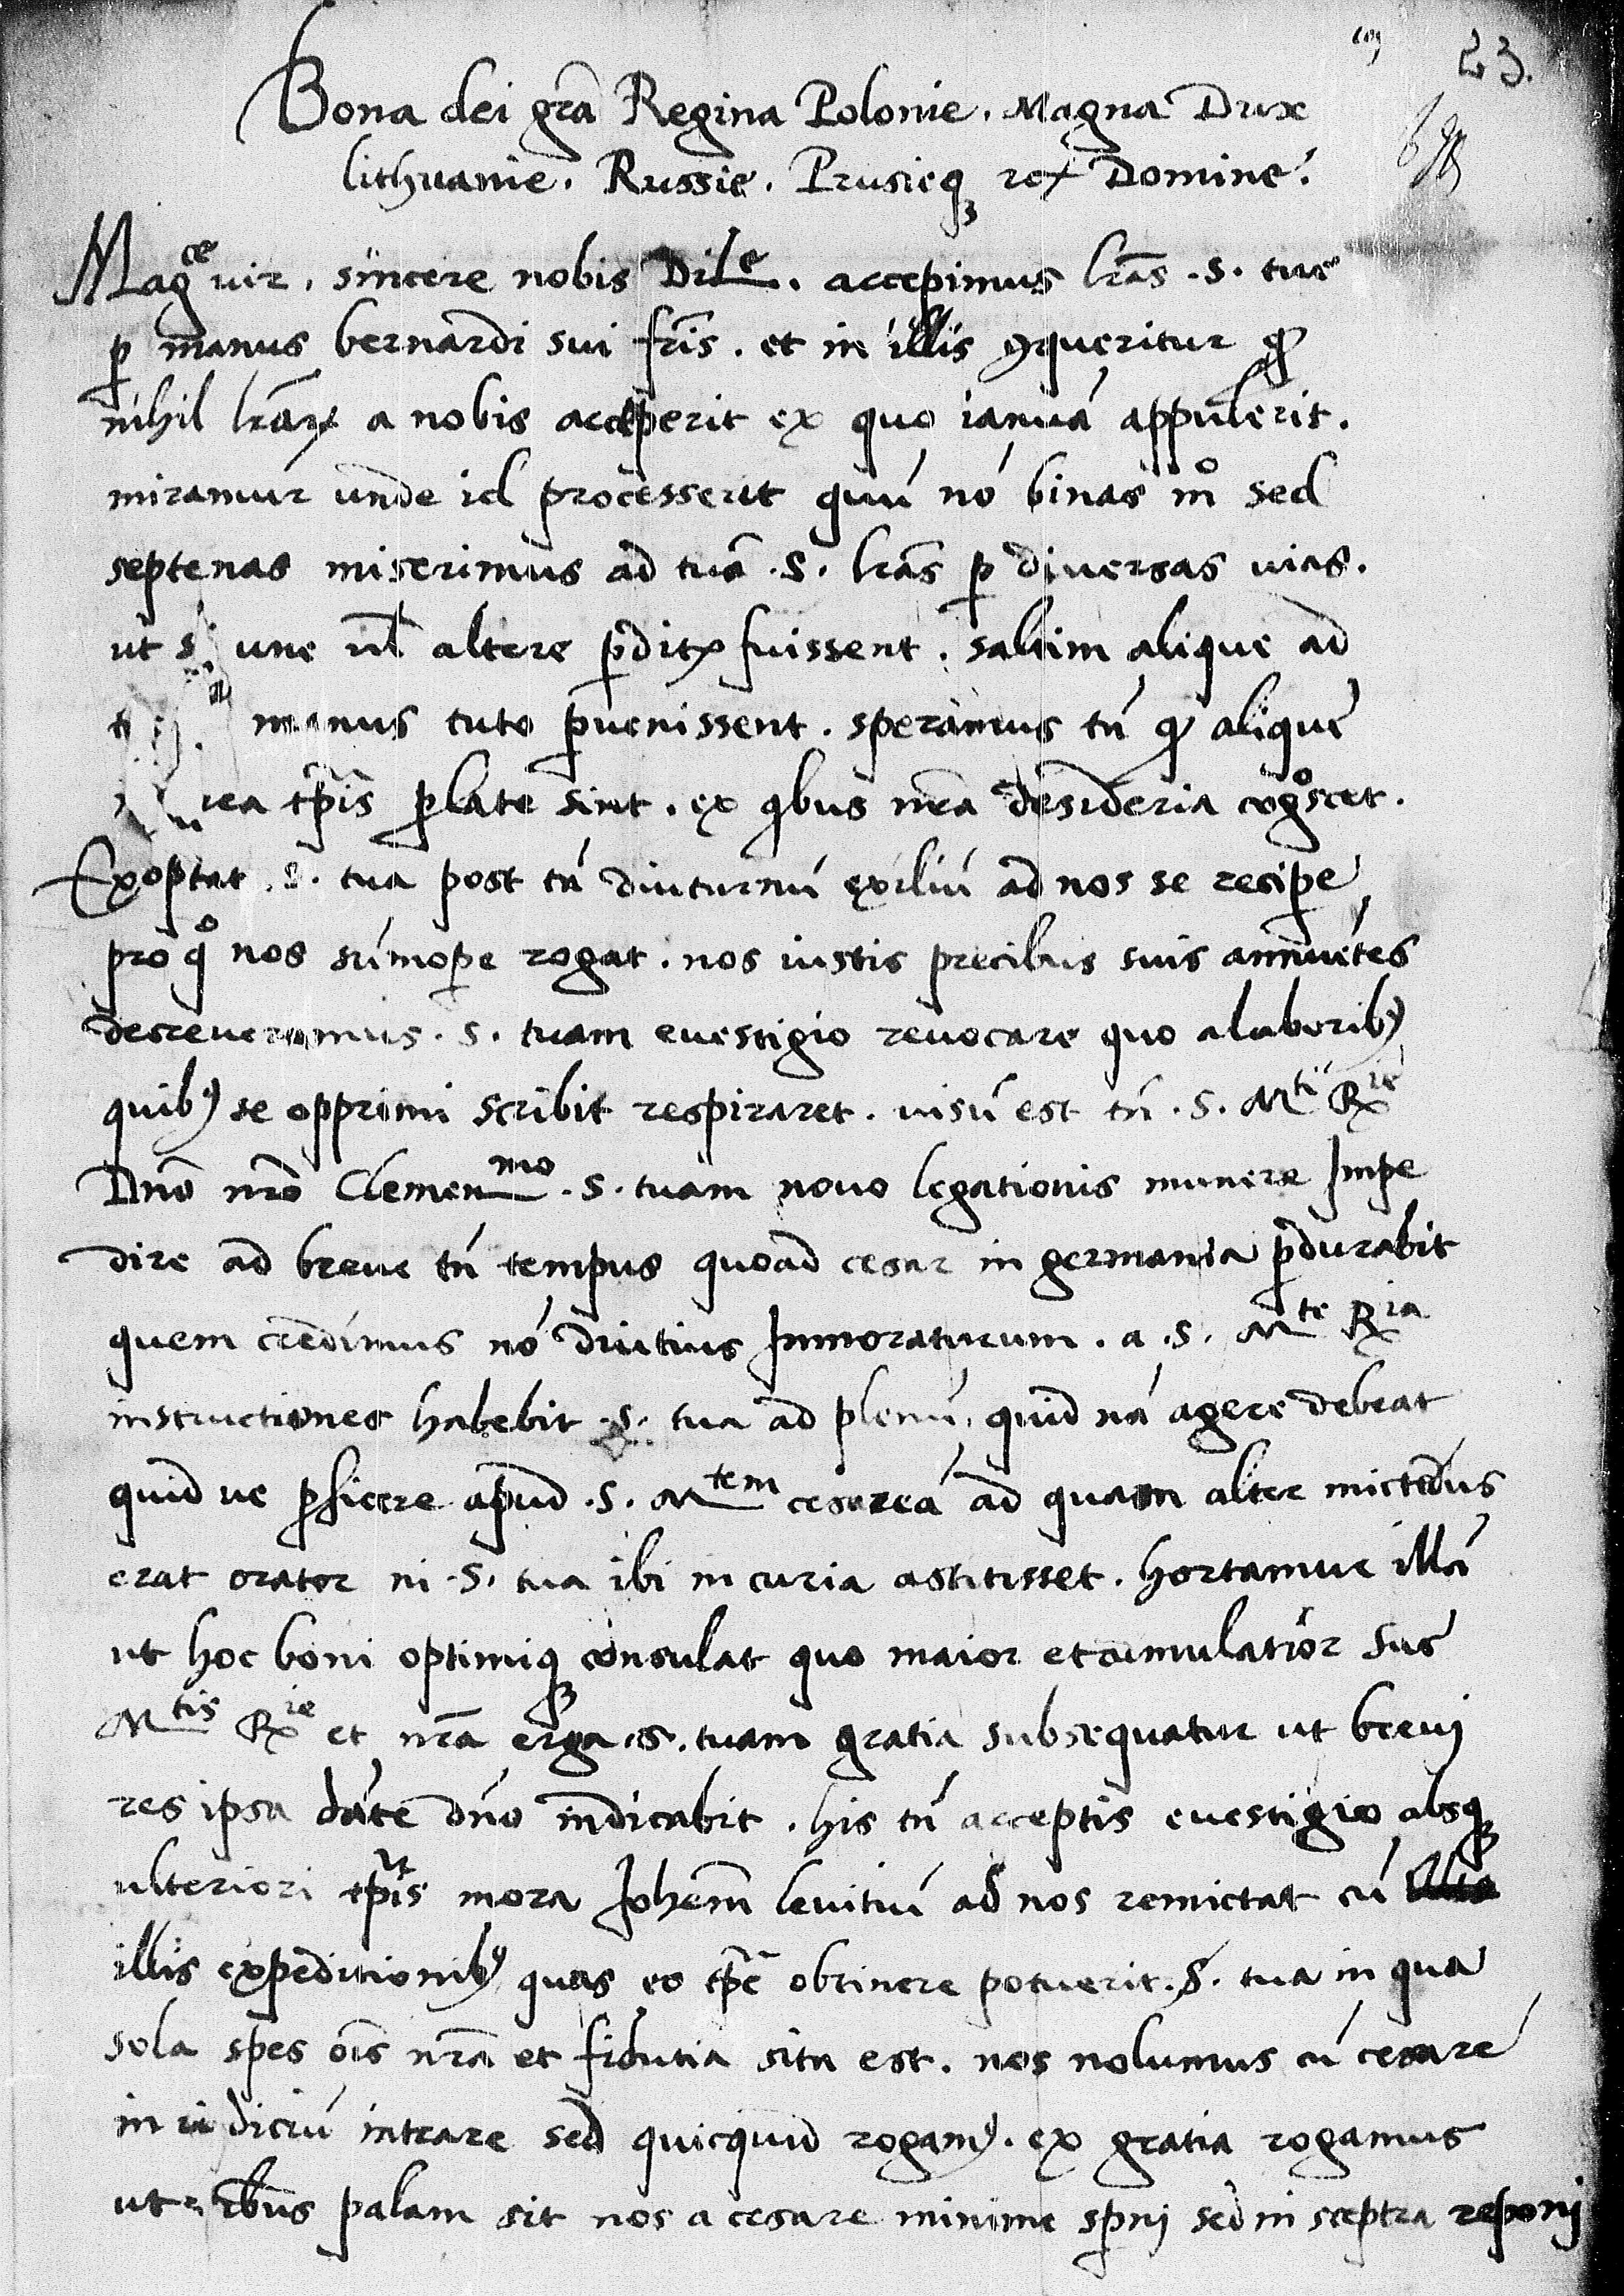 23.
Bona dei gr̃a Regina Polonie. Magna Dux
lithuanie. Russie. Prusieqꝫ ꝛc̃ Domine.
Mag^ce vir, sincere nobis Dil^e. accepimus lr̃as .S. tue
ꝑ manus bernardi sui fr̃is. et in illis ꝯqueritur ꝙ
nihil lr̃aꝝ a nobis acceperit ex quo ianuá appulerit.
miramur unde id processerit quú nó binas m^o sed
septenas miserimus ad tuã .S. lr̃as ꝑ diversas vias.
ut si une vl̃ altere ꝑdite fuissent. saltim alique ad
manus tuto ꝑvenissent. speramus tń ꝙ alique
rea tp̃is ꝑlate sint. ex qbus nr̃a desideria cog^oscet.
Exoptat .S. tua post tá diuturnú exiliú ad nos se recipe
pro q^o nos súmoꝑe rogat. nos iustis precibus suis annuétes
decreueramus .S. tuam evestigio revocare quo a laborib⁹
quib⁹ se opprimi scribit respiraret. visú est tń .S. M^ti R^ie
Dñо nr̃o Clemen^mo .S. tuam novo legationis munere Impe
dire ad breve tń tempus quoad cesar in germania ꝑdurabit
quem credimus nó diutius Inmoraturum. a .S. M^te R^ia
instructiones habebit .S. tua ad plenú, quid ná agere debeat
quid ve ꝑficere apud .S. M^tem cesareá ad quam alter mictédus
erat orator ni .S. tua ibi in curia astitisset. hortamur illá
ut hoc boni optimiqꝫ consulat quo maior et cumulatior sue
M^tis R^ie et nr̃a erga .S. tuam gratia subsequatur ut brevj
res ipsa dáte dńo indicabit. his tń acceptis evestigio absqꝫ
ulteriori tp̃is mora Johem̃ levitiú ad nos remictat cú
illis expeditionib⁹ quas eo tp̃e obtinere potuerit .S. tua in qua
sola spes oĩs nr̃a et fidutia sita est. nos nolumus cú cesare
in iudiciú intrare sed quicquid rogam⁹. ex gratia rogamus
ut palam sit nos a cesare minime sꝑnj sed in sceptra reponj